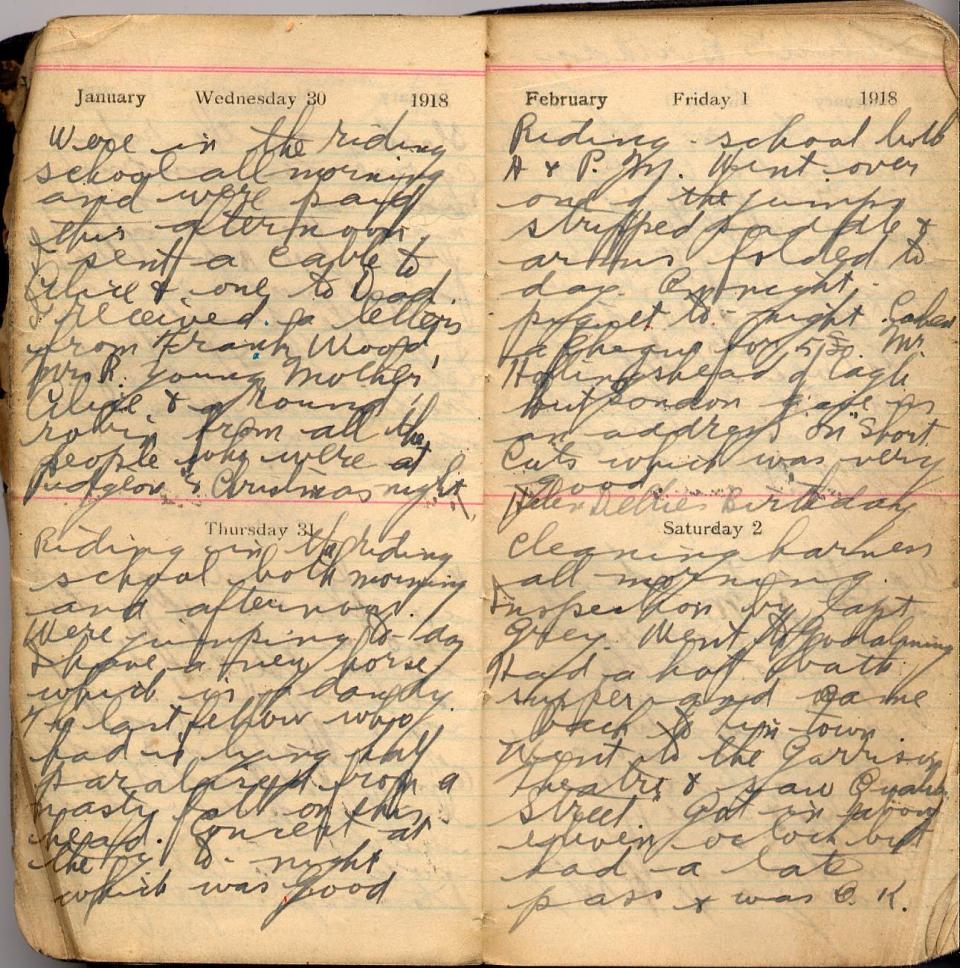 January Wednesday 30 1918
Were in the riding
school all morning
and were paid
this afternoon.
I sent a cable to
Alice & one to Dead.
I received a letters
from Frank Wood,
Mrs R. Young, Mother,
Alice, & a round
robin from all the
people who were at
Christmas night
Thursday 31
Riding in the riding
school both morning
and afternoon.
Were jumping to-day
I have a new horse
which is a dandy.
The last fellow who
had it lying half
paralized from a
nasty fall on his
head. Concert at
the to-night
which was good
February Friday 1 1918
Riding school both
A & P.M. Went over
one of the jumps
stripped saddle &
arms folded to
day. On night
piquet to-night.
a cheque for Mr.
Hollingshead of Eagle
but London gave us
an address on "Short
Cuts which was very
good
Helen Birthday
Saturday 2
Cleaning harness
all morning.
Inspection by Capt
Grey. Went to Godalming
Had a hot bath
supper and came
back to town
Went to the Garrison
Theatre & saw Quality
Street. Got in
eleven oclock but
had a late
pass & was O.K.